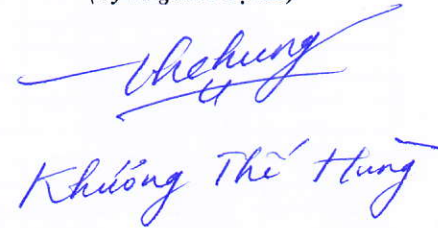 Thehung
Khướng Thế Hùng